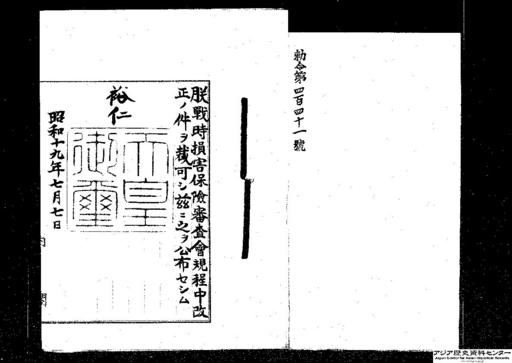 勅令第四百四十一號
朕戰時損害保險審查會規程中改
正ノ件ヲ裁可シ茲ニ之ヲ公布セシム
裕仁
天皇
御璽
昭和十九年七月七日
内 閣
アジア歴史資料センター
Japan Center for Asian Historical Records